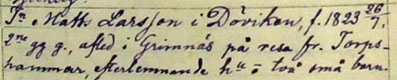 Tn. Math. Larsson i Döviken, f. 1823 26/7.
2ne gg g., afled i Grimnäs på resa fr. Torps-
hammar, efterlemnande hu = två små barn.